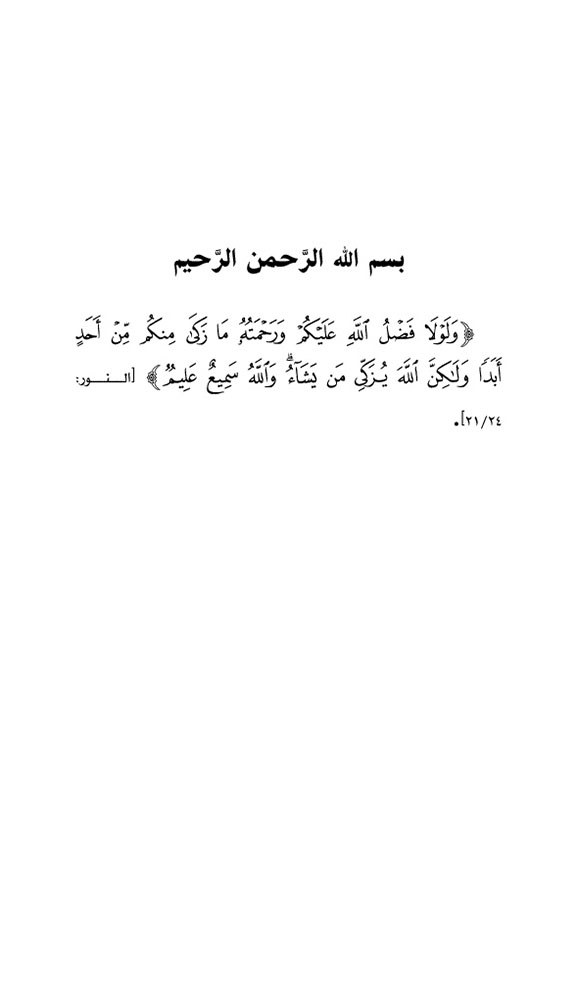 بسم الله الرَّحمن الرَّحيم
﴿وَلَوْلَا فَضْلُ ٱللَّهِ عَلَيْكُمْ وَرَحْمَتُهُۥ مَا زَكَىٰ مِنكُم مِّنْ أَحَدٍ
أَبَدًا وَلَٰكِنَّ ٱللَّهَ يُزَكِّي مَن يَشَآءُۗ وَٱللَّهُ سَمِيعٌ عَلِيمٌ﴾ [النور:
٢١/٢٤].